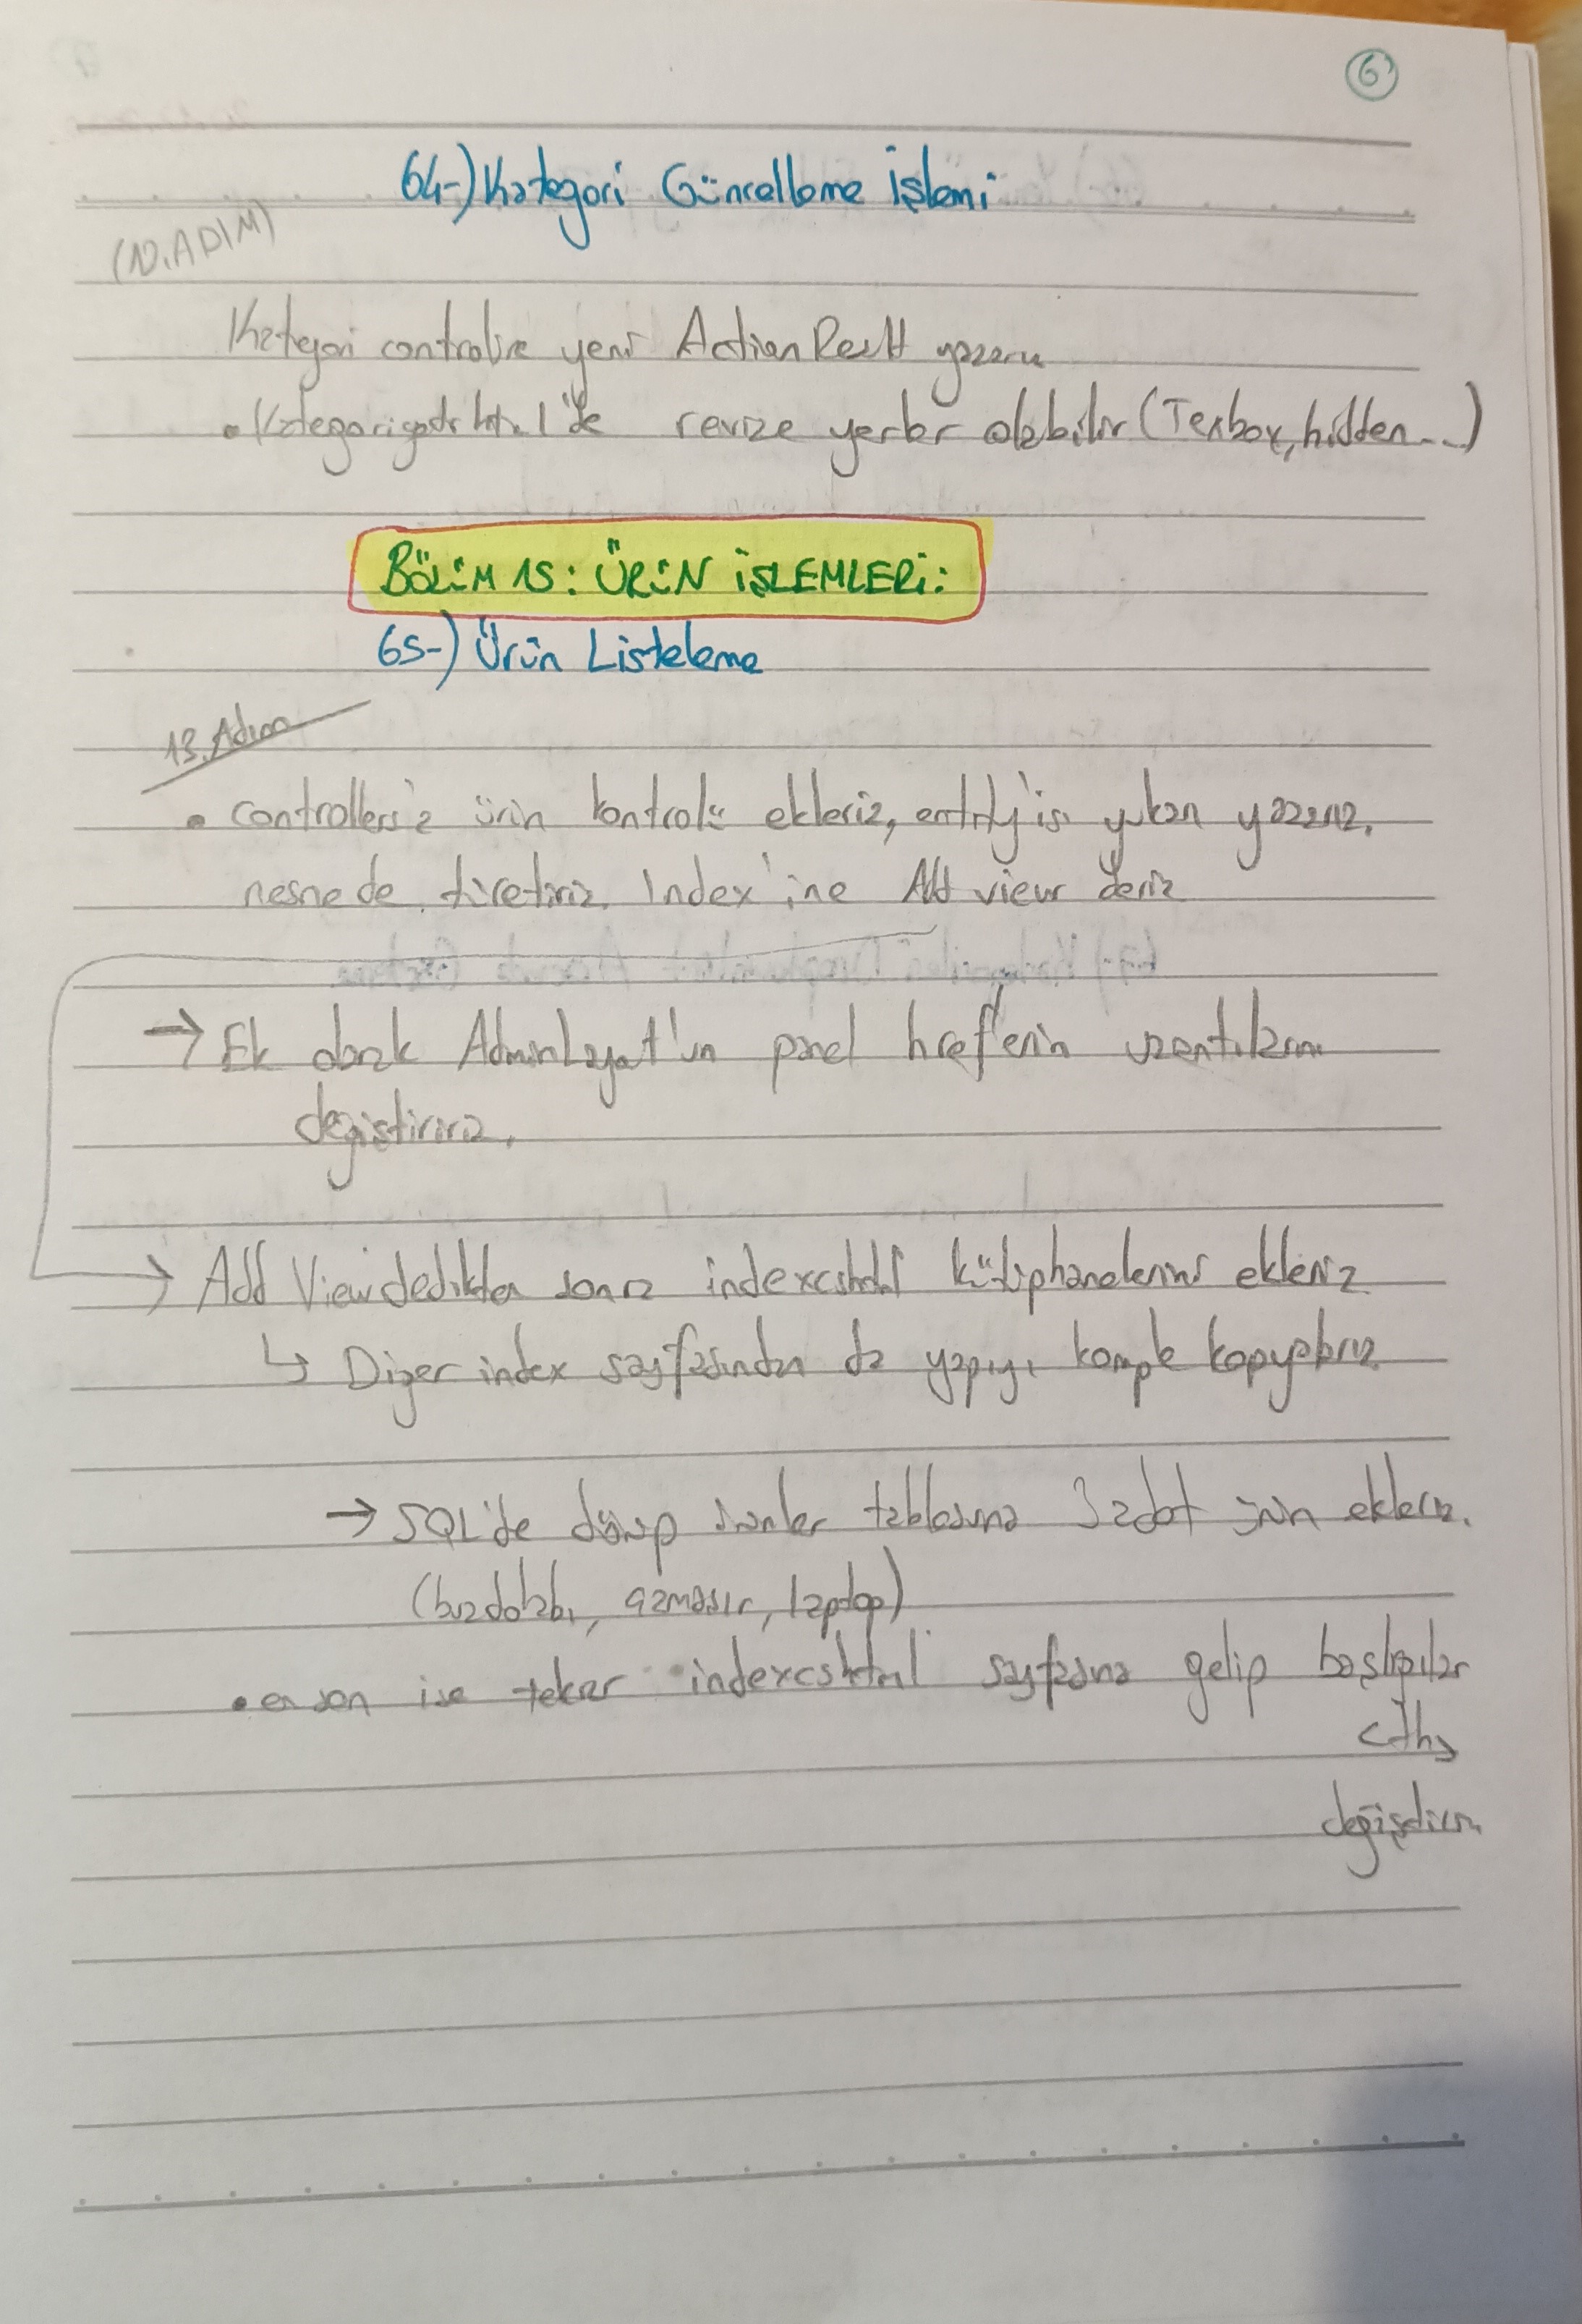 6
64-) Kategori Güncelleme İşlemi
(12.ADIM)
Kategori controlire yeni ActionResult yazarız
• Kategorigetir html'de revize yerler olabilir (Texbox, hidden...)
BÖLÜM 15: ÜRÜN İŞLEMLERİ:
65-) Ürün Listeleme
13. Adım
• controllers'a ürün kontrolü ekleriz, entity'isi yukarı yazarız.
nesnede türetiriz. Index'ine Add view deriz
→ Ek olarak AdminLayout'un panel href'lerin uzantılarını
değiştiririz.
→ Add View dedikten sonra indexcshtml kütüphanelerini ekleriz
↳ Diğer index sayfasından da yapıyı komple kopyalarız
→ SQL'de dönüp ürünler tablosuna 3 adet ürün ekleriz.
(buzdolabı, çamaşır, laptop)
• en son ise tekrar indexcshtml sayfasına gelip başlığılar
<th>
değişdirin